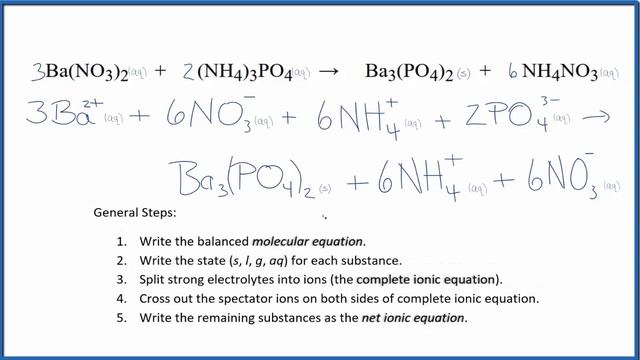 3Ba(NO₃)₂(aq) + 2(NH₄)₃PO₄(aq) → Ba₃(PO₄)₂(s) + 6NH₄NO₃(aq)
3Ba²⁺(aq) + 6NO₃⁻(aq) + 6NH₄⁺(aq) + 2PO₄³⁻(aq) →
Ba₃(PO₄)₂(s) + 6NH₄⁺(aq) + 6NO₃⁻(aq)
General Steps:
1. Write the balanced molecular equation.
2. Write the state (s, l, g, aq) for each substance.
3. Split strong electrolytes into ions (the complete ionic equation).
4. Cross out the spectator ions on both sides of complete ionic equation.
5. Write the remaining substances as the net ionic equation.